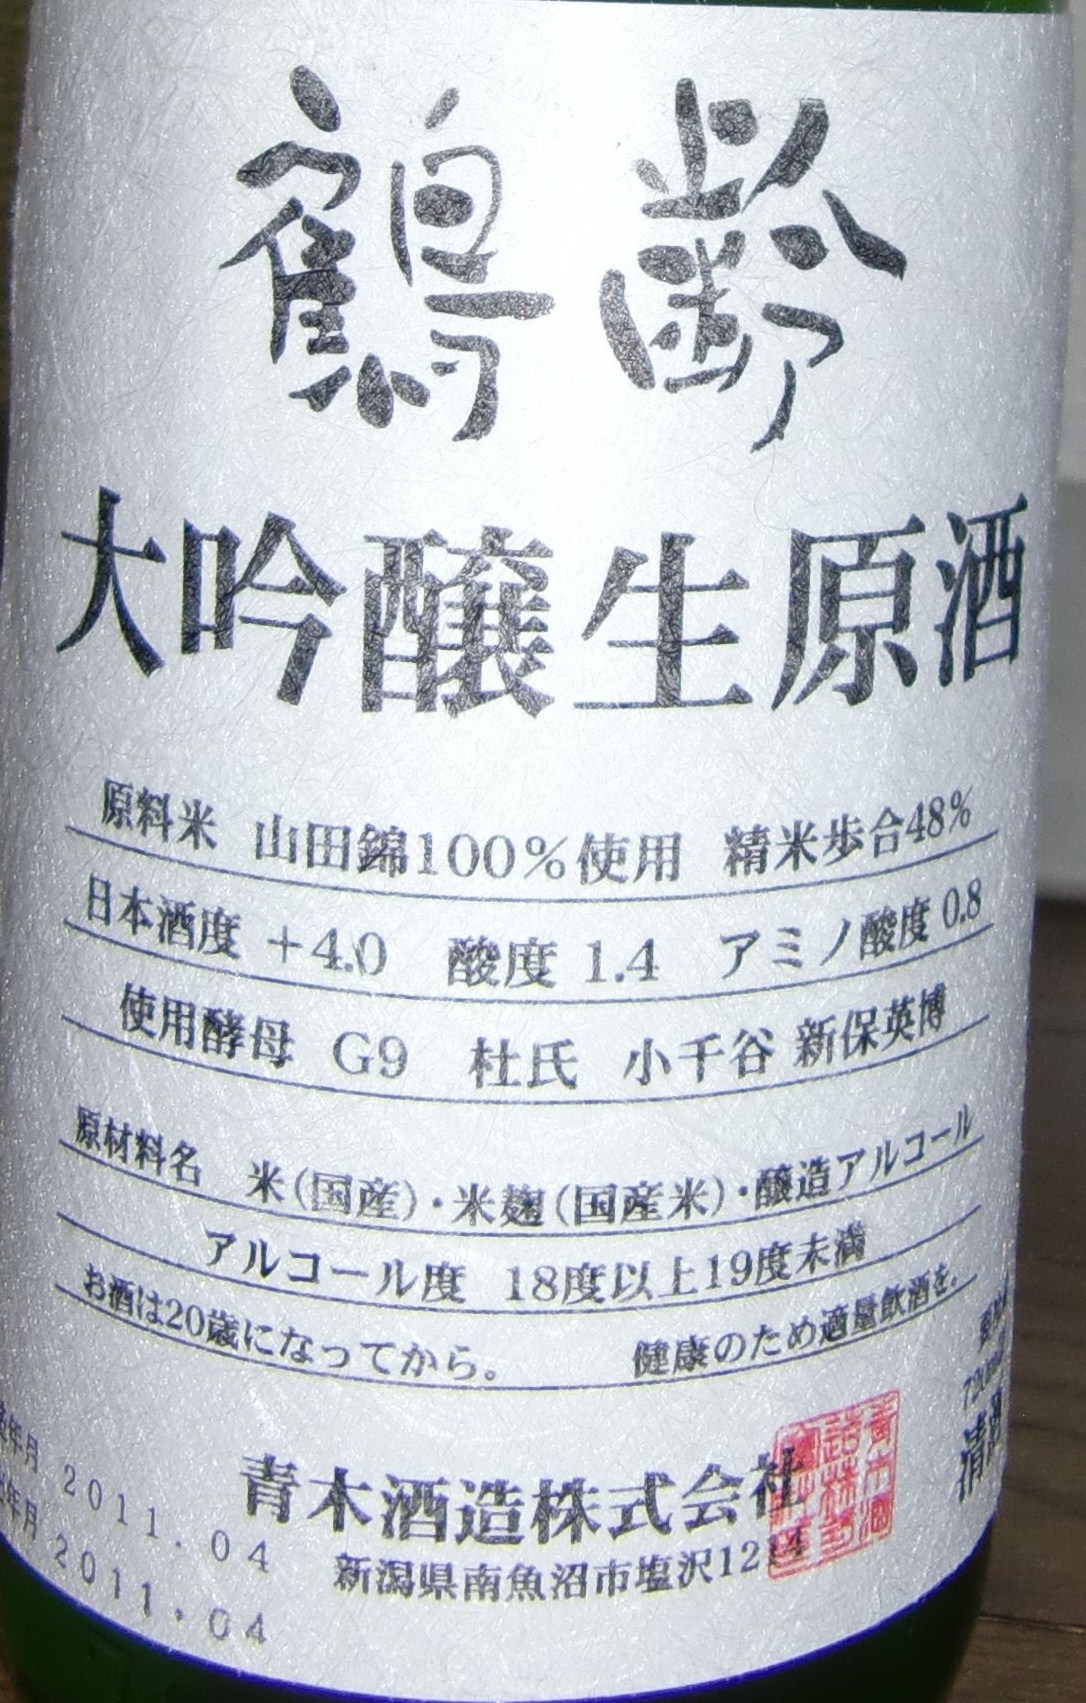 鶴齢
大吟醸生原酒
原料米 山田錦100%使用 精米歩合48%
日本酒度 +4.0 酸度 1.4 アミノ酸度 0.8
使用酵母 G9 杜氏 小千谷 新保英博
原材料名 米(国産)・米麹(国産米)・醸造アルコール
アルコール度 18度以上19度未満
お酒は20歳になってから。 健康のため適量飲酒を。
年月 2011.04
年月 2011.04
青木酒造株式会社
新潟県南魚沼市塩沢1214
720
清酒